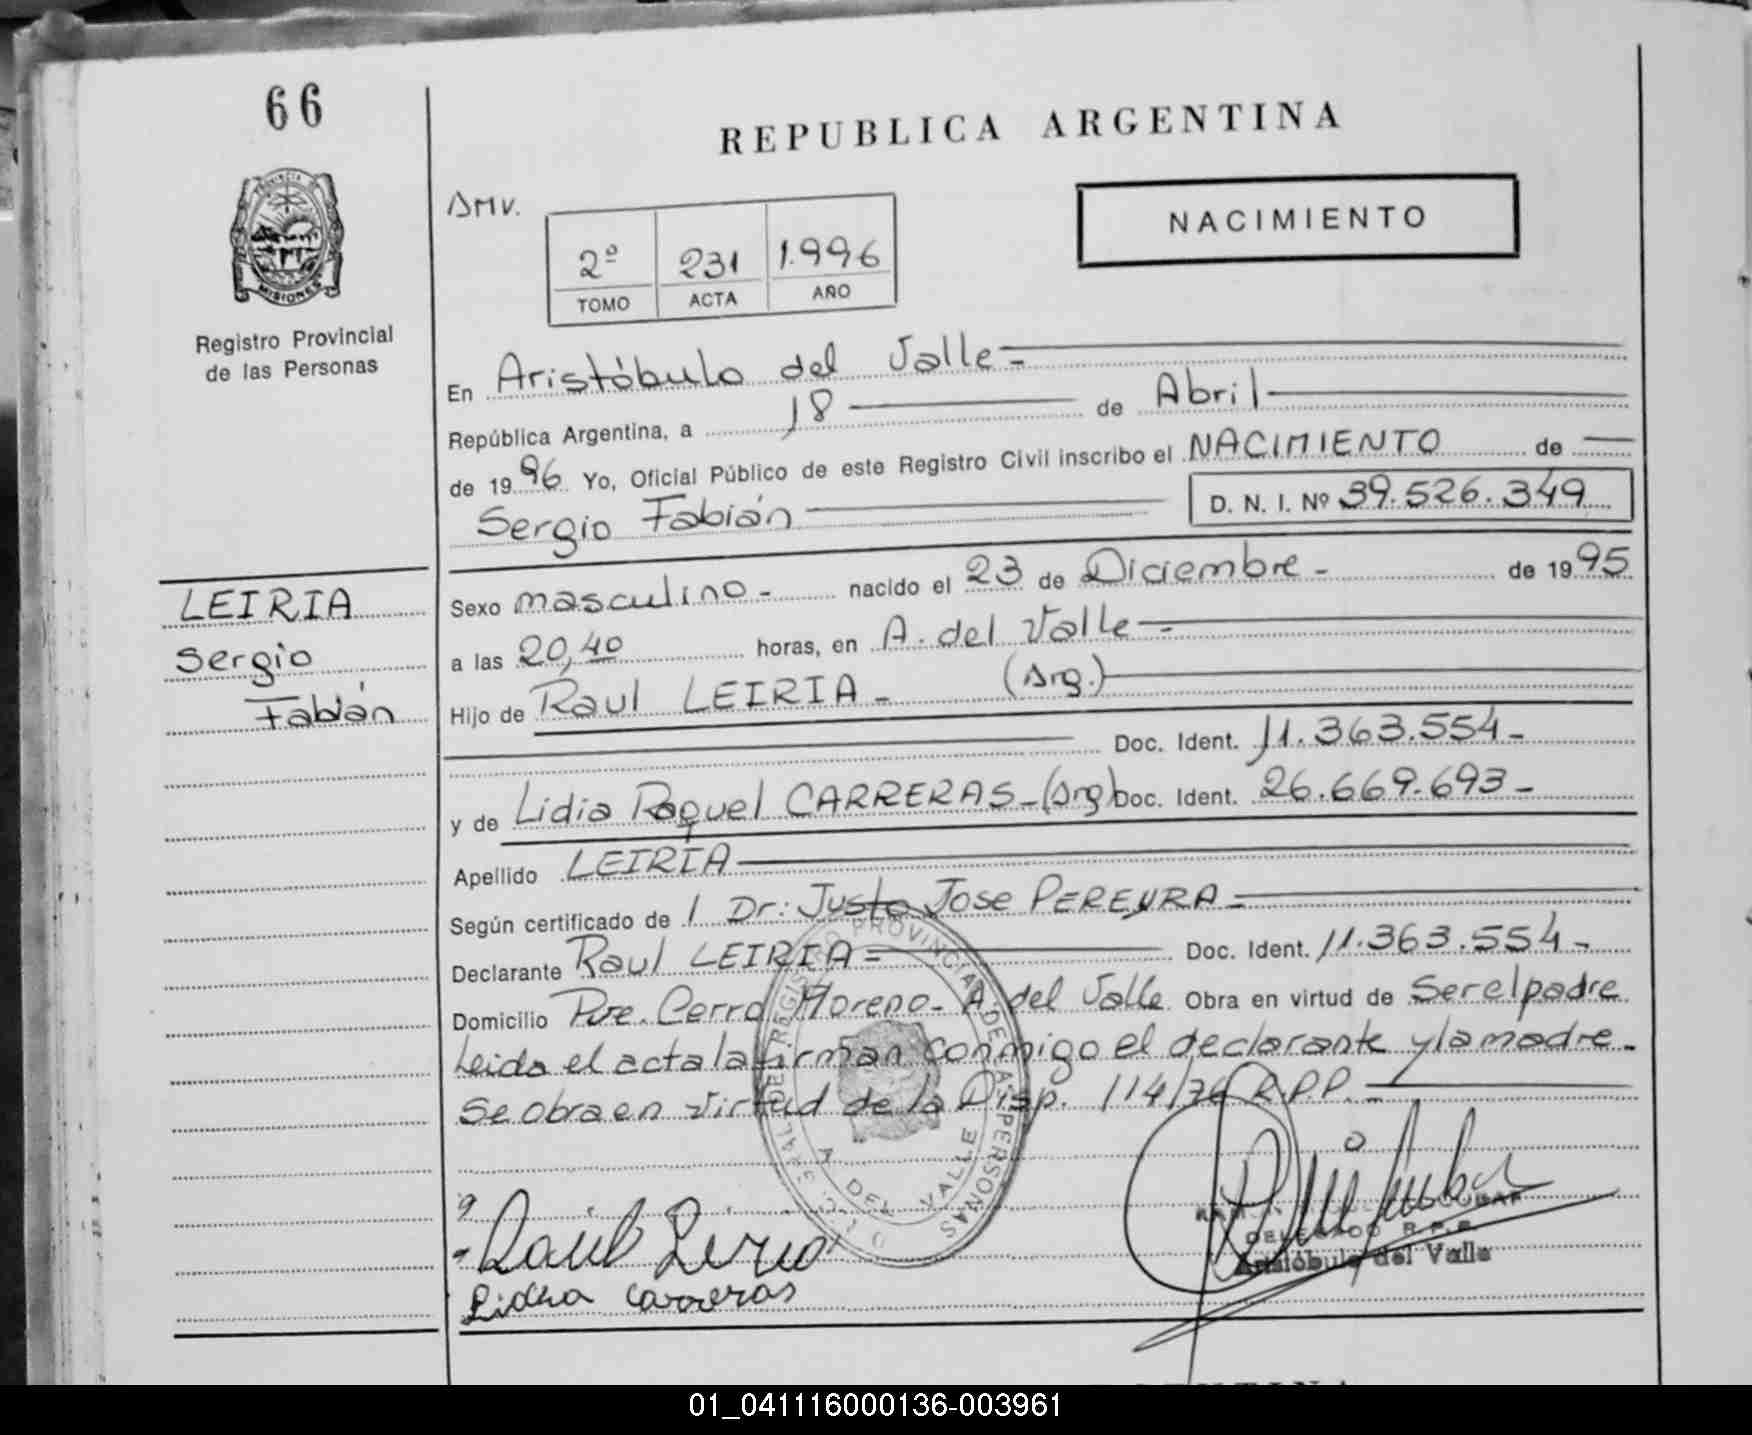 66
REPUBLICA ARGENTINA
PROVINCIA DE
MISIONES
Registro Provincial
de las Personas
AMV.
2º 231 1.996
TOMO ACTA AÑO
NACIMIENTO
En Aristóbulo del Valle-
República Argentina, a 18 de Abril
de 1996 Yo, Oficial Público de este Registro Civil inscribo el NACIMIENTO de
Sergio Fabián D. N. I. Nº 39.526.349
LEIRIA
Sergio
Fabián
Sexo masculino- nacido el 23 de Diciembre- de 1995
a las 20,40 horas, en A. del Valle-
Hijo de Raul LEIRIA- (Arg.)
Doc. Ident. 11.363.554-
y de Lidia Raquel CARRERAS-(Arg) Doc. Ident. 26.669.693-
Apellido LEIRIA
Según certificado de 1 Dr: Justo Jose PEREYRA-
Declarante Raul LEIRIA= Doc. Ident. 11.363.554-
Domicilio Pje. Cerro Moreno- A. del Valle Obra en virtud de Ser el padre
Leida el acta la firman conmigo el declarante y la madre-
Se obra en virtud de la Disp. 114/76 R.P.P.-
REGISTRO PROVINCIAL DE LAS PERSONAS
A. DEL VALLE
Raúl Leiria
Lidia Carreras
DELEGADO R.P.P.
Aristóbulo del Valle
01_041116000136-003961